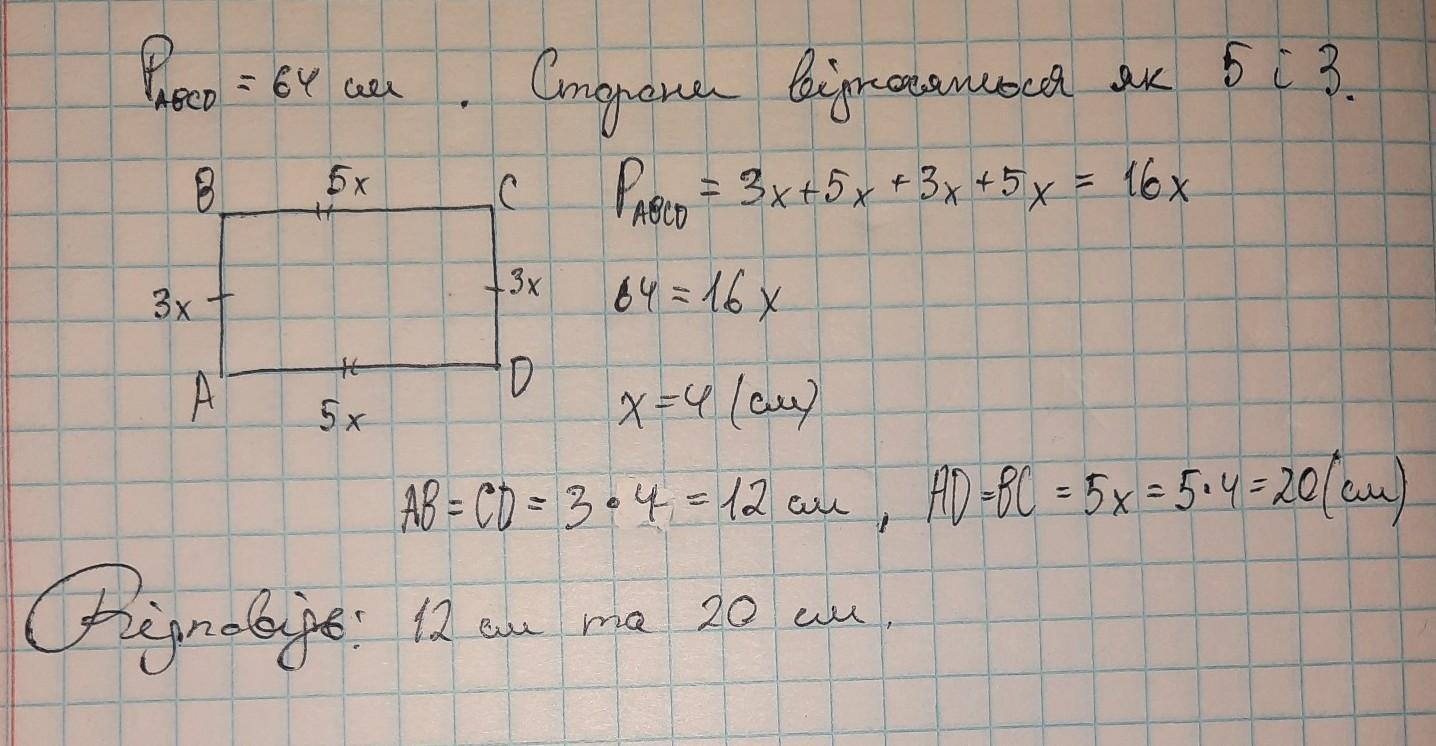 P_ABCD = 64 см . Сторони відносяться як 5 і 3.
B 5x C
P_ABCD = 3x+5x+3x+5x = 16x
3x 3x
64 = 16x
A D
5x
x = 4 (см)
AB = CD = 3 • 4 = 12 см , AD = BC = 5x = 5·4 = 20 (см)
Відповідь: 12 см та 20 см.